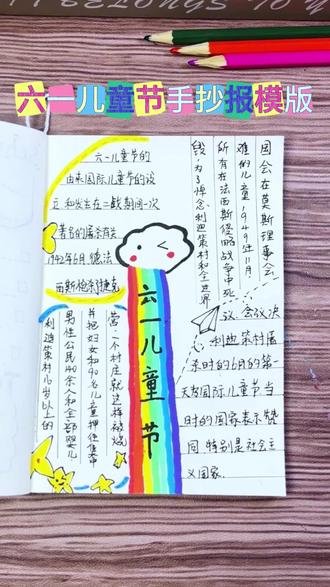 BELONGS TO
六一儿童节手抄报模版
六一儿童节的
由来国际儿童节的设
立 和发生在二战期间一次
著名的屠杀有关
1942年6月 德法
西斯枪杀捷克
利迪策村16岁以上的
男性公民140余人和全部婴儿
并把妇女和90名儿童押往集中
营。一个村庄就这样被烧
六一儿童节
线,为了悼念利迪策村和全世界
所有在法西斯侵略战争中死
难的儿童,1949年11月
因会在莫斯理事会
议 会议决
利迪策村屠
杀时的6月的第一
天为国际儿童节当
时的国家表示赞
同 特别是社会主
义国家.